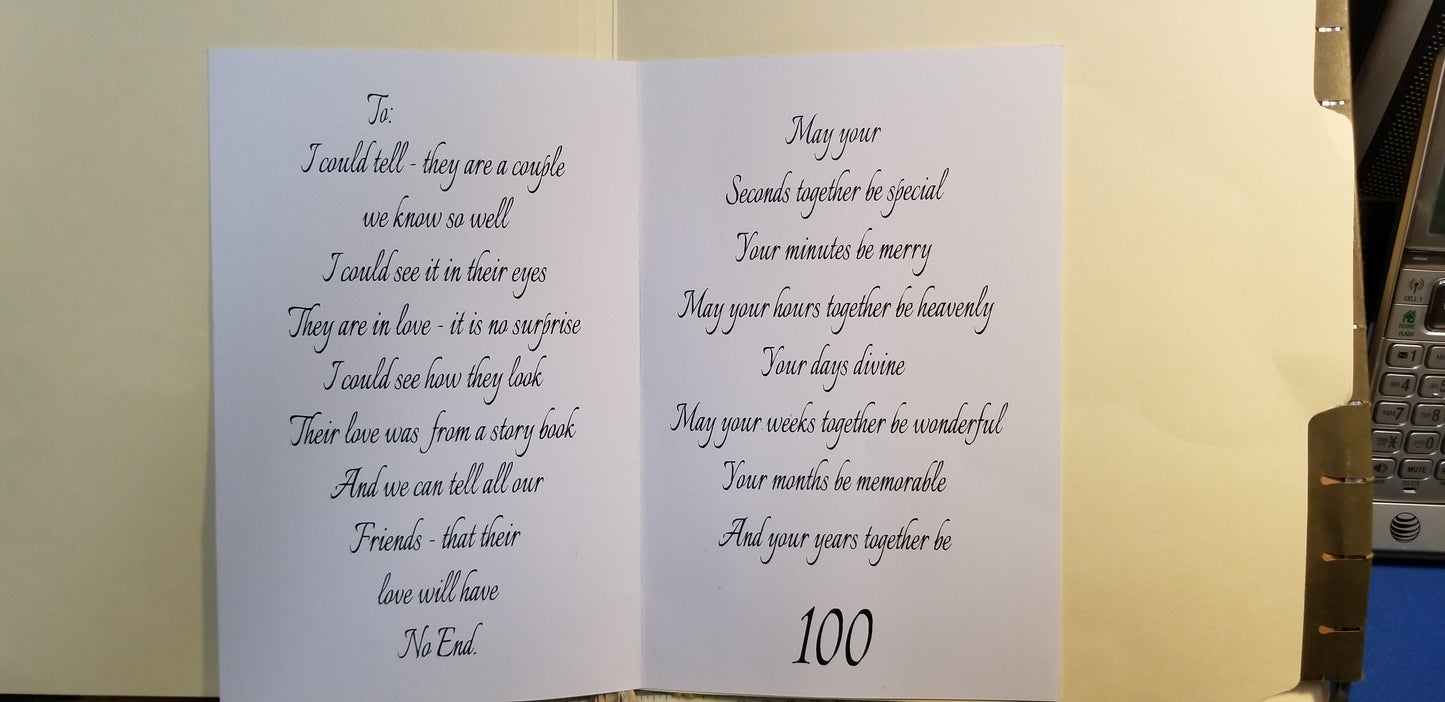 To:
I could tell - they are a couple
we know so well
I could see it in their eyes
They are in love - it is no surprise
I could see how they look
Their love was from a story book
And we can tell all our
Friends - that their
love will have
No End.
May your
Seconds together be special
Your minutes be merry
May your hours together be heavenly
Your days divine
May your weeks together be wonderful
Your months be memorable
And your years together be
100
CELL 1
HOME
FLASH
1
4
7
8
0
MUTE
DELETE